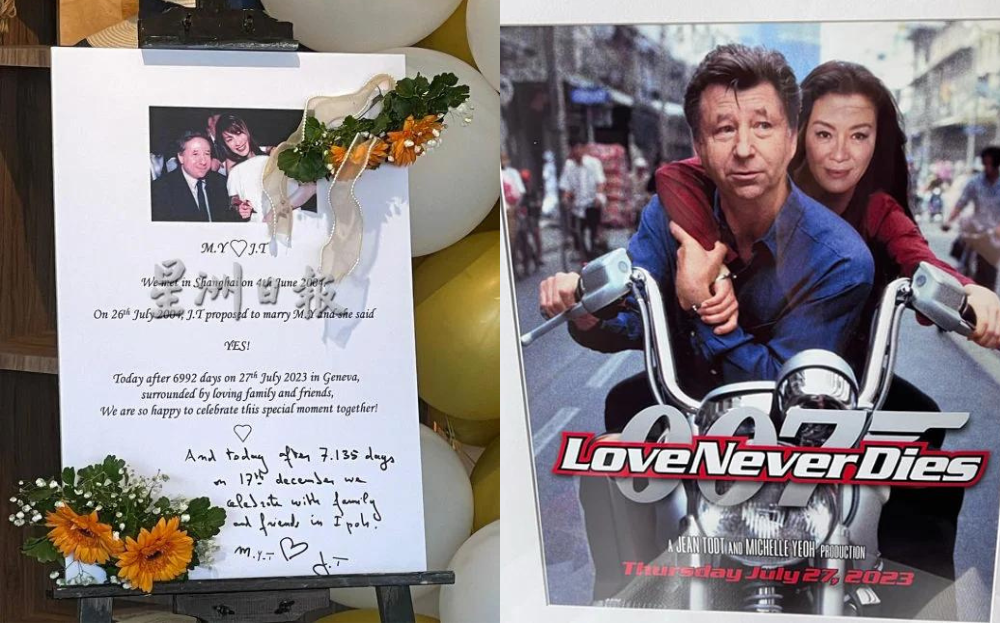 M.Y♡J.T
We met in Shanghai on 4th June 2004.
星洲日報
On 26th July 2004, J.T proposed to marry M.Y and she said
YES!
Today after 6992 days on 27th July 2023 in Geneva,
surrounded by loving family and friends,
We are so happy to celebrate this special moment together!
♡
And today after 7.135 days
on 17th december we
celebrate with family
and friends in Ipoh!
M.Y.T ♡ J.T
007
Love Never Dies
A JEAN TODT AND MICHELLE YEOH PRODUCTION
Thursday July 27, 2023